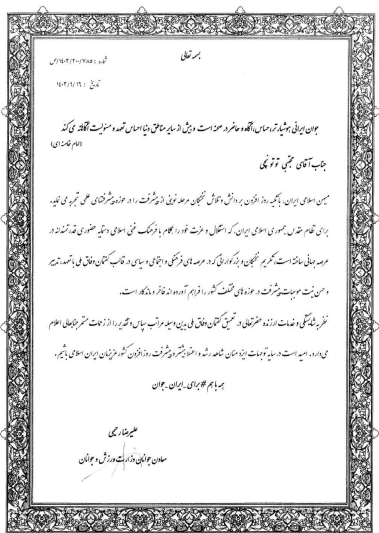 بسمه تعالی
شماره : ۱۴۰۳/۲۰۰/۷۸۵/ص
تاریخ : ۱۴۰۳/۹/۱۶
جوان ایرانی هوشیارتر، حساس، آگاه و حاضر در صحنه است و بیش از سایر مناطق دنیا احساس تعهد و مسئولیت آگاهانه می کند
(امام خامنه ای)
جناب آقای مجتبی توتونچی
میهن اسلامی ایران، با تکیه روز افزون بر دانش و تلاش نخبگان مرحله نوینی از پیشرفت را در حوزه پیشرفتهای علمی تجربه می نماید،
برای نظام مقدس جمهوری اسلامی ایران، که استقلال و عزت خود را همگام با فرهنگ غنی اسلامی دستمایه حضوری قدرتمندانه در
عرصه جهانی ساخته است، تکریم نخبگان و بزرگوارانی که در عرصه های فرهنگی و اجتماعی و سیاسی در قالب گفتمان وفاق ملی با تعهد، تدبیر
و حسن نیت موجبات پیشرفت در حوزه های مختلف کشور را فراهم آورده اند فاخر و ماندگار است.
نظر به شایستگی و خدمات ارزنده حضرتعالی در تعمیق گفتمان وفاق ملی بدین وسیله مراتب سپاس و تقدیر را از زحمات مستمر جنابعالی اعلام
می دارد. امید است در سایه توجهات ایزد منان شاهد رشد و اعتلا بیشتر و پیشرفت روز افزون کشور عزیزمان ایران اسلامی باشیم.
همه با هم #برای_ایران_جوان
علیرضا رحیمی
معاون جوانان وزارت ورزش و جوانان